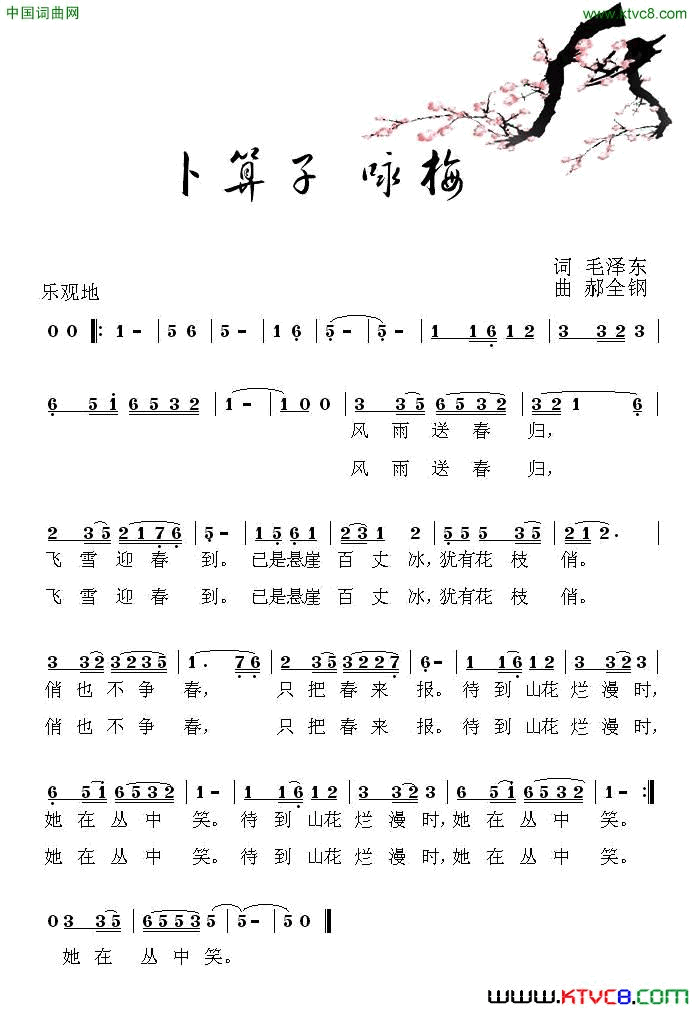 中国词曲网
www.ktvc8.com
卜算子 咏梅
词 毛泽东
曲 郝全钢
乐观地
0 0 ‖: 1 - | 5 6 | 5 - | 1 6 | 5 - | 5 - | 1 1 6 1 2 | 3 3 2 3 |
6 5 1 6 5 3 2 | 1 - | 1 0 0 | 3 3 5 6 5 3 2 | 3 2 1 6 |
风 雨 送 春 归，
风 雨 送 春 归，
2 3 5 2 1 7 6 | 5 - | 1 5 6 1 | 2 3 1 2 | 5 5 5 3 5 | 2 1 2 . |
飞 雪 迎 春 到。 已是悬崖 百 丈 冰，犹有花 枝 俏。
飞 雪 迎 春 到。 已是悬崖 百 丈 冰，犹有花 枝 俏。
3 3 2 3 2 3 5 | 1 . 7 6 | 2 3 5 3 2 2 7 | 6 - | 1 1 6 1 2 | 3 3 2 3 |
俏 也 不 争 春， 只 把 春 来 报。 待 到 山花 烂 漫 时，
俏 也 不 争 春， 只 把 春 来 报。 待 到 山花 烂 漫 时，
6 5 1 6 5 3 2 | 1 - | 1 1 6 1 2 | 3 3 2 3 | 6 5 1 6 5 3 2 | 1 - :‖
她 在 丛 中 笑。 待 到 山花 烂 漫 时，她 在 丛 中 笑。
她 在 丛 中 笑。 待 到 山花 烂 漫 时，她 在 丛 中 笑。
0 3 3 5 | 6 5 5 3 5 | 5 - | 5 0 ‖
她 在 丛 中 笑。
www.KTVC8.com